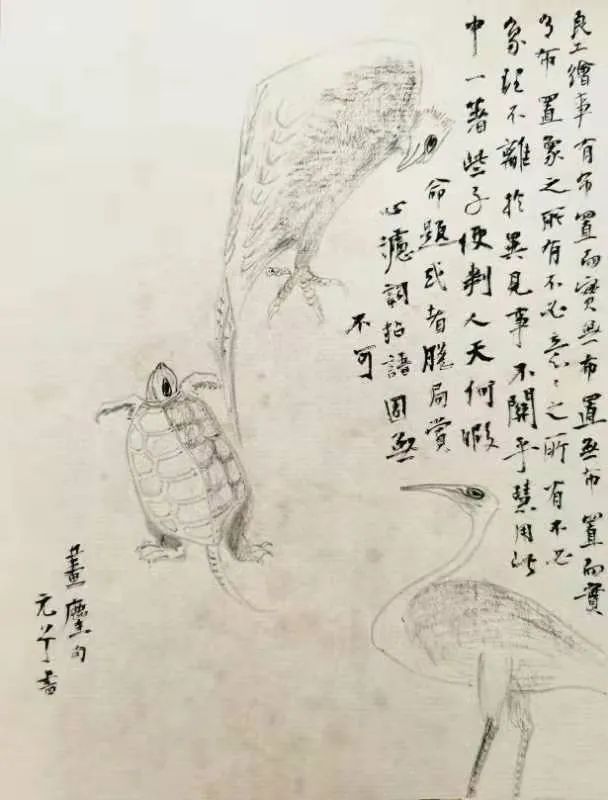 良工繪事有布置而實無布置無布置而實
有布置象之所有不必意〻之所有不必
象理不離於異見事不關乎慧用此
中一著些子便判人天何暇
命題或者勝局賞
心濾詞拈語固無
不可
畫塵句
元